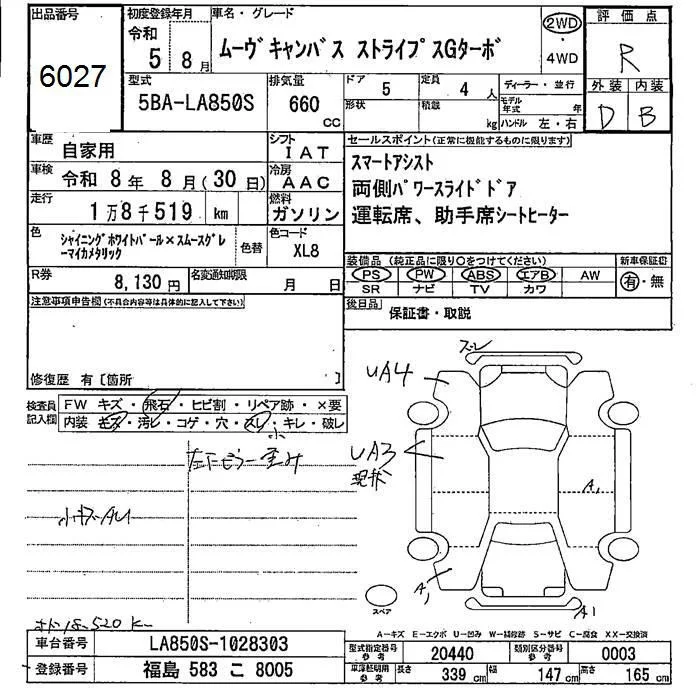 出品番号 6027
初度登録年月 令和 5 8月
車名・グレード ムーヴキャンバス ストライプスGターボ
2WD・4WD
評価点 R
外装 内装
D B
型式 5BA-LA850S
排気量 660 cc
ドア 5
形状
定員 4 人
積載 kg
ディーラー・並行
モデル年式 年
ハンドル 左・右
車歴 自家用
シフト IAT
車検 令和 8年 8月(30日)
冷房 AAC
走行 1万8千519 km
燃料 ガソリン
色 シャイニングホワイトパール×スムースグレーマイカメタリック
色替
色コード XL8
R券 8,130円
名変通知期限 月 日
セールスポイント(正常に機能するものに限ります)
スマートアシスト
両側パワースライドドア
運転席、助手席シートヒーター
装備品(純正品に限り○をつけてください)
PS PW ABS エアB AW
SR ナビ TV カワ
新車保証書 有・無
後日品 保証書・取説
注意事項申告欄(不具合内容等は具体的に記入して下さい)
修復歴 有〔箇所 〕
検査員記入欄
FW キズ・飛石・ヒビ割・リペア跡・×要
内装 キズ・汚レ・コゲ・穴・スレ・キレ・破レ
小
ズレ
UA4
UA3
A1
A1
A1
スペア
A-キズ E-エクボ U-凹み W-補修跡 S-サビ C-腐食 XX-交換済
車台番号 LA850S-1028303
登録番号 福島 583 こ 8005
型式指定番号 参考 20440
類別区分番号 参考 0003
車庫証明用 参考 長さ 339 cm 幅 147 cm 高さ 165 cm